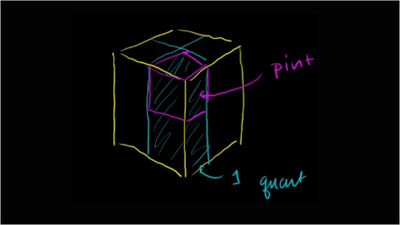 pint
1 quart